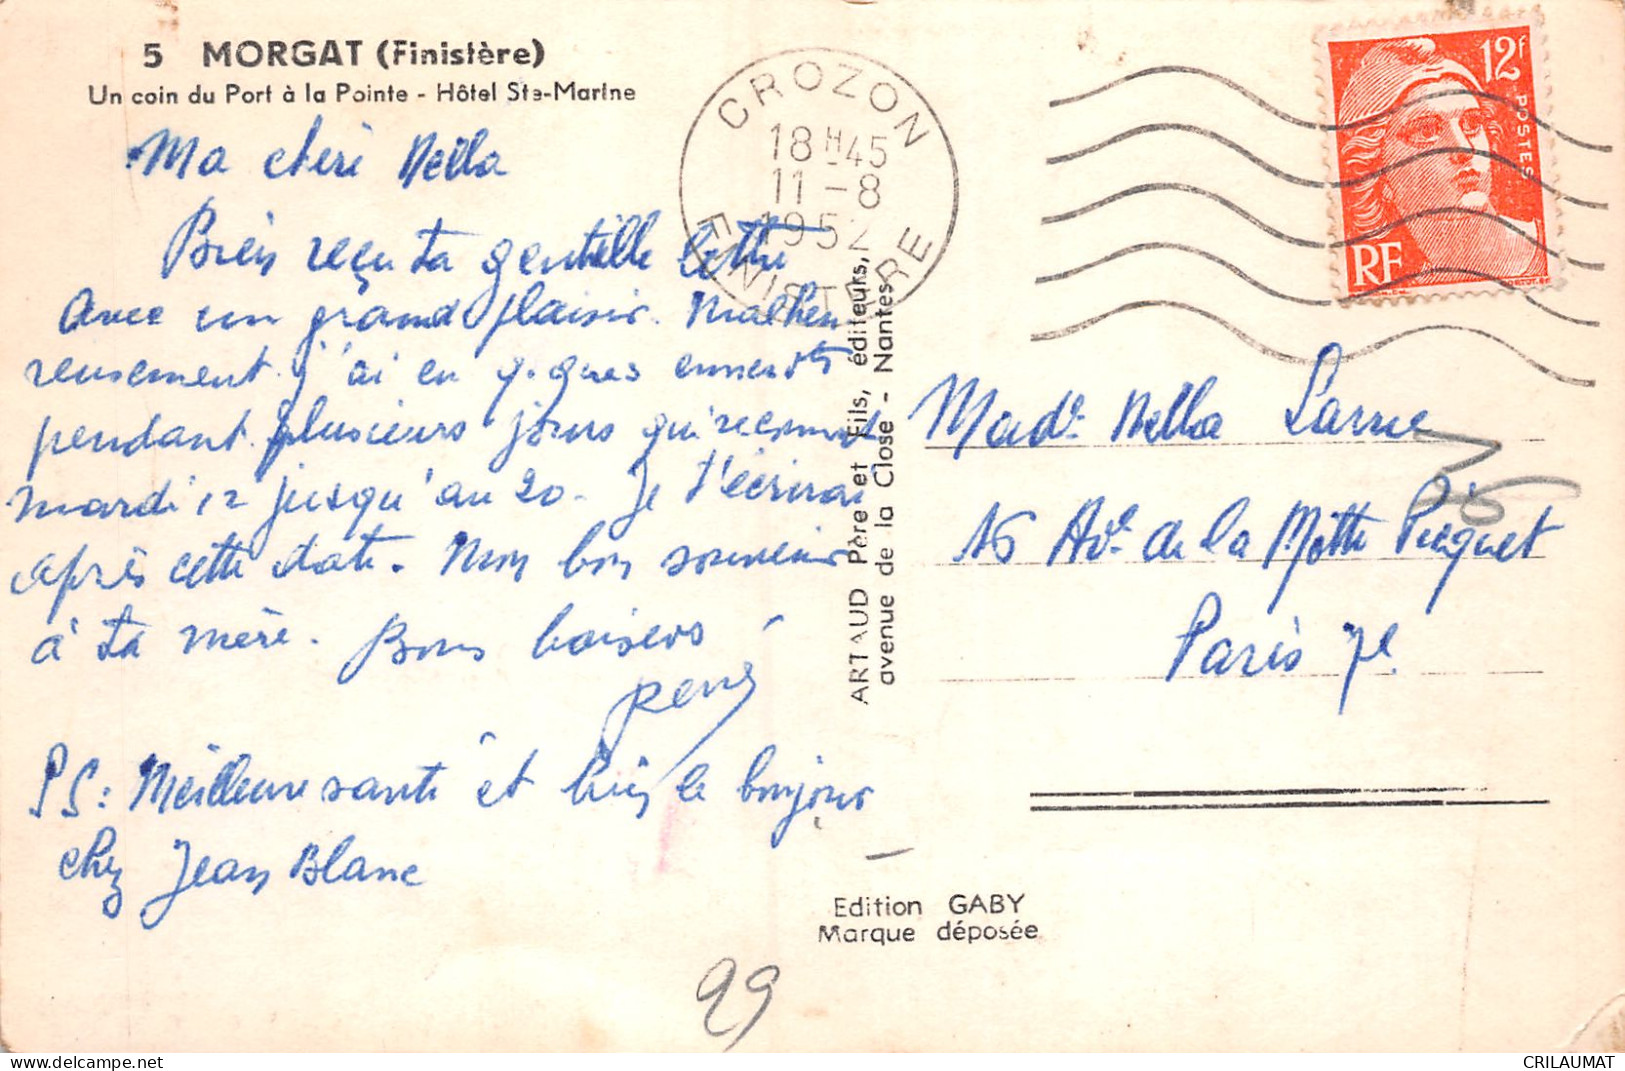 5 MORGAT (Finistère)
Un coin du Port à la Pointe - Hôtel Ste-Marine
Ma chéri Nella
Bien reçu ta gentille lettre
Avec un grand plaisir. Malheu
reusement j'ai eu q.ques
pendant plusieurs jours
mardi 12 jusqu'au 20. Je t'écrirai
après cette date. Mon bon souvenir
à ta mère. Bons baisers
René
PS: Meilleure santé et bien le bonjour
chez Jean Blanc
CROZON
18H45
11-8
1952
FINISTERE
12F
POSTES
RF
ARTAUD Père et Fils, éditeurs,
avenue de la Close - Nantes
Made Nella Larue
16 Ave de la Motte Picquet
Paris 7e
Edition GABY
Marque déposée
99
CRILAUMAT